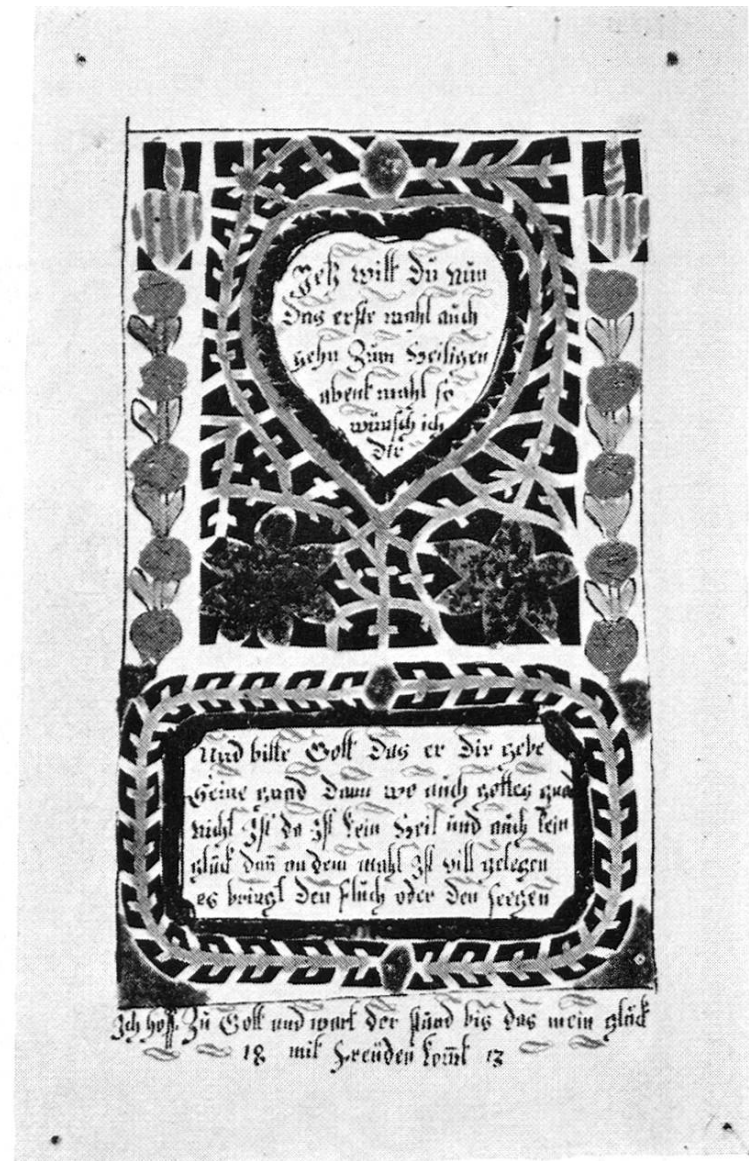 Jetz willt Du Nun
Das erste mahl auch
gehn Zum Heiligen
abentmahl so
wünsch ich
Dir
Und bitte Gott Das er Dir gebe
Seine gnad Dann wo auch gottes gnad
nicht Ist da Ist kein Heil und auch kein
glück dañ an dem mahl Ist vill gelegen
es bringt Den fluch oder Den seegen
Ich hoff Zu Gott und wart der stund bis das mein glück
18 mit Freüden kom̄t 13